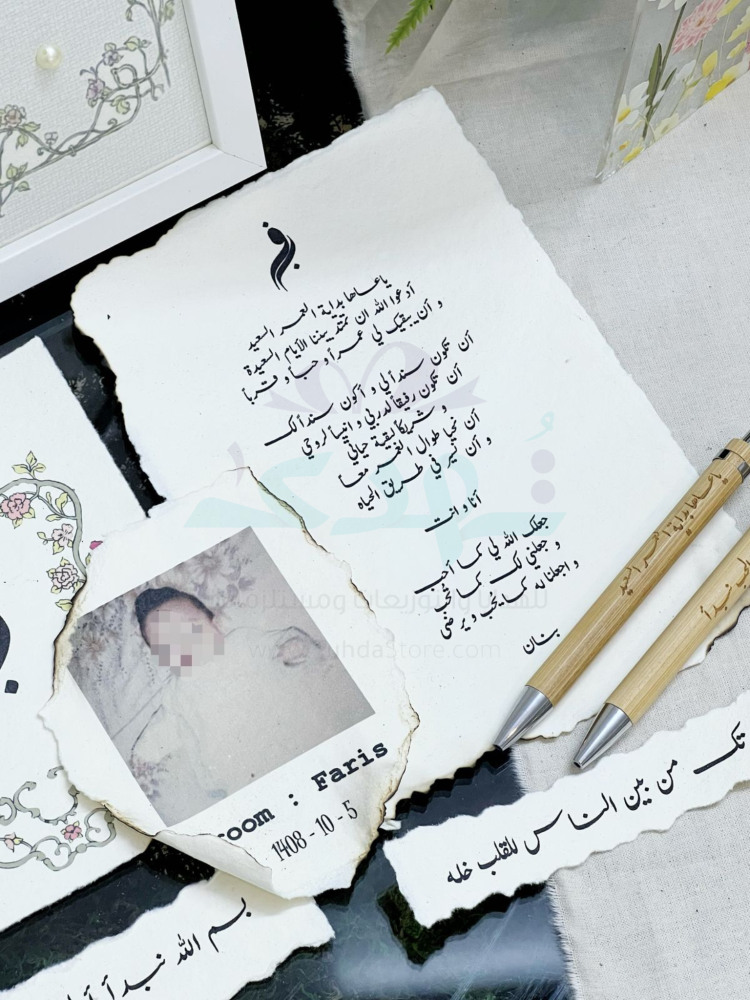 ياعساها بداية العمر السعيد
أدعوا الله ان تمتد بيننا الأيام السعيدة
و أن يبقيك لي عمراً و حباً و قرباً
أن تكون سنداً لي و أكون سنداً لك
أن تكون رفيقاً لدربي و انيساً لروحي
و شريكاً لبقية حياتي
أن نحيا طوال العمر معا
و أن نسير في طريق الحياه
أنا و انت
جعلك الله لي كما أحب
و جعلني لك كما تحب
و اجعلنا له كما يحب و يرضى
بنان
تهدى
للهدايا والتوزيعات ومستلزمات
TuhdaStore.com
ياعساها بداية العمر السعيد
نبدأ
room : Faris
1408 - 10 - 5
تك من بين الناس للقلب خله
بسم الله نبدأ